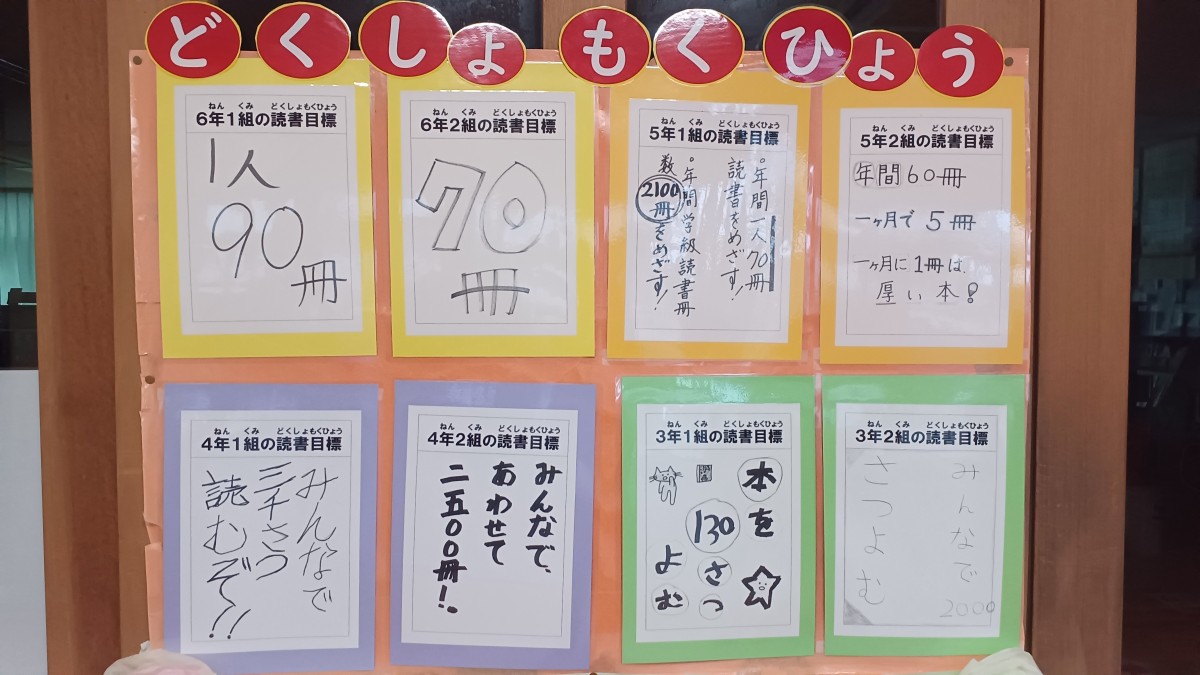 どくしょもくひょう
ねん くみ どくしょもくひょう
6年1組の読書目標
1人
90
冊
ねん くみ どくしょもくひょう
6年2組の読書目標
70
冊
ねん くみ どくしょもくひょう
5年1組の読書目標
。年間一人70冊
読書をめざす!
。年間学級読書冊
数2100冊をめざす!
ねん くみ どくしょもくひょう
5年2組の読書目標
年間60冊
一ヶ月で5冊
一ヶ月に1冊は、
厚い本!
ねん くみ どくしょもくひょう
4年1組の読書目標
みんなで
三千さつ
読むぞ!!
ねん くみ どくしょもくひょう
4年2組の読書目標
みんなで、
あわせて
二五00冊!
ねん くみ どくしょもくひょう
3年1組の読書目標
本を
130
さつ
よむ
ねん くみ どくしょもくひょう
3年2組の読書目標
みんなで2000
さつよむ